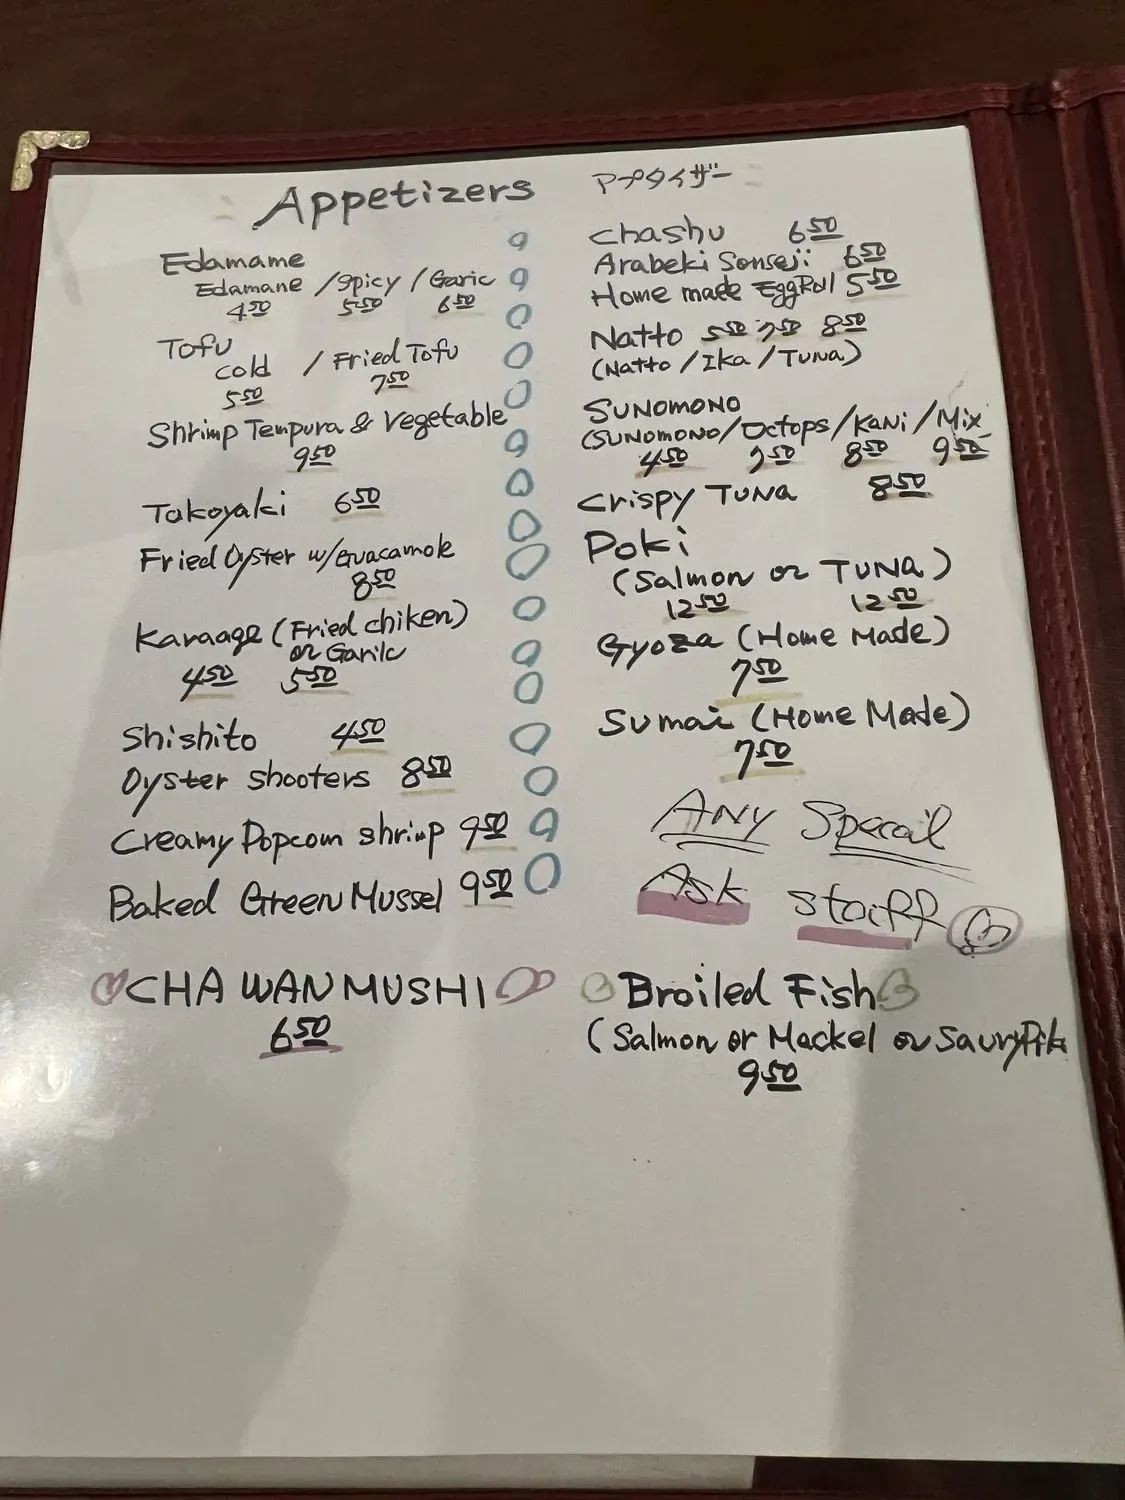 Appetizers
アプタイザー
Edamame
Edamane / Spicy / Garic
4.50 5.50 6.50
Tofu
cold / Fried Tofu
5.50 7.50
Shrimp Tempura & Vegetable
9.50
Takoyaki 6.50
Fried Oyster w/Guacamole
8.50
Karaage (Fried chiken)
or Garilc
4.50 5.50
Shishito 4.50
Oyster shooters 8.50
Creamy Popcorn shrimp 9.50
Baked Green Mussel 9.50
CHAWANMUSHI
6.50
Chashu 6.50
Arabeki Sonseji 6.50
Home made EggRoll 5.50
Natto 5.50 7.50 8.50
(Natto / Ika / Tuna)
SUNOMONO
(SUNOMONO / Octops / Kani / Mix
4.50 7.50 8.50 9.50
Crispy Tuna 8.50
Poki
(Salmon or Tuna)
12.50 12.50
Gyoza (Home Made)
7.50
Sumai (Home Made)
7.50
Any Specail
Ask staff
Broiled Fish
(Salmon or Mackel or Saury
9.50